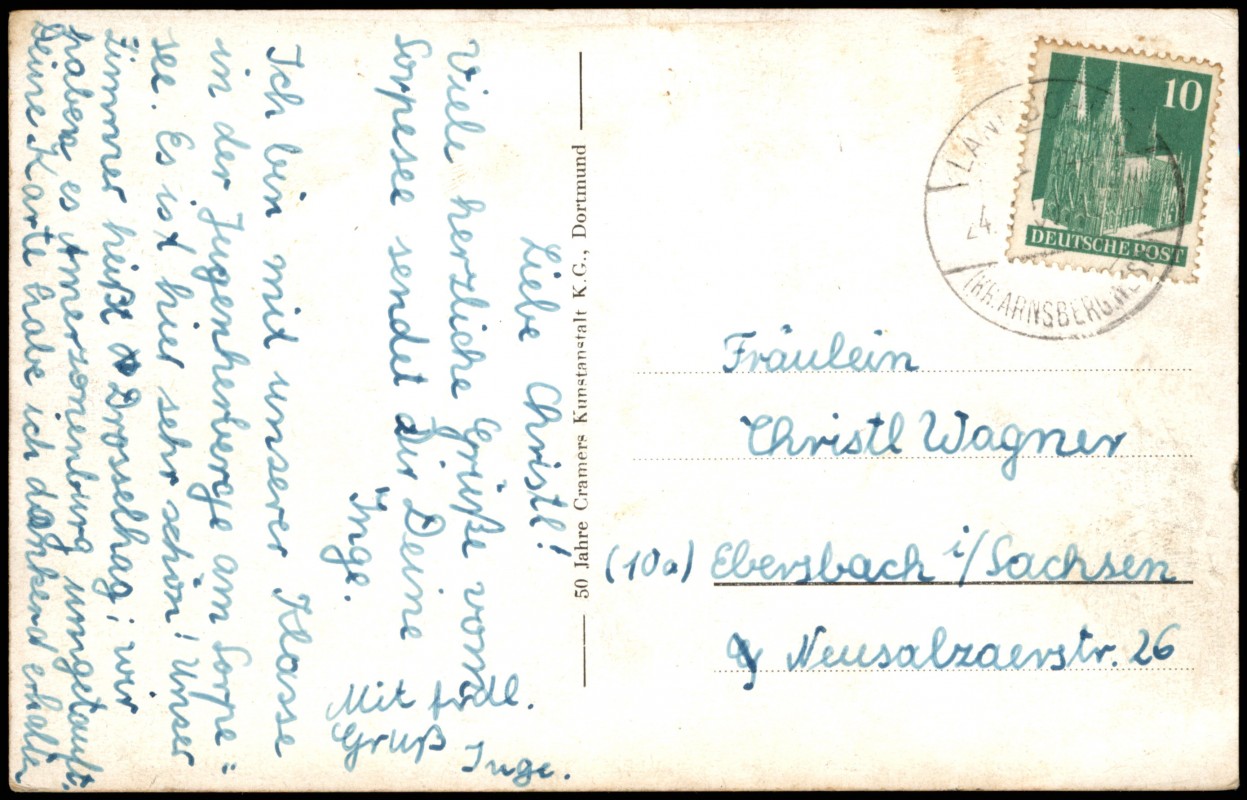 Liebe Christl!
Viele herzliche Grüße vom
Sorpesee sendet Dir Deine
Inge.
Ich bin mit unserer Klasse
in der Jugenherberge am Sorpe=
see. Es ist hier sehr schön! Unser
Zimmer heißt Drosselhag; wir
haben es Amerzonenburg umgetauft.
Deine Karte habe ich dankend erhalten
Mit frdl.
Gruß Inge.
50 Jahre Cramers Kunstanstalt K.G., Dortmund
10
DEUTSCHE POST
24.
ARNSBERG
Fräulein
Christl Wagner
(10a) Ebersbach i/Sachsen
Neusalzaerstr. 26